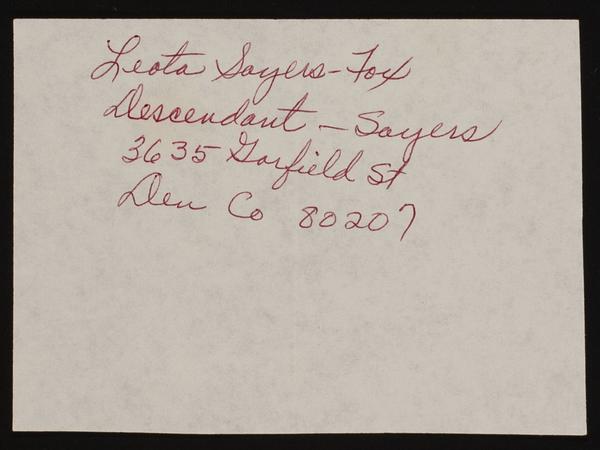 Leota Sayers-Fox
Descendant - Sayers
3635 Garfield St
Den Co 80207